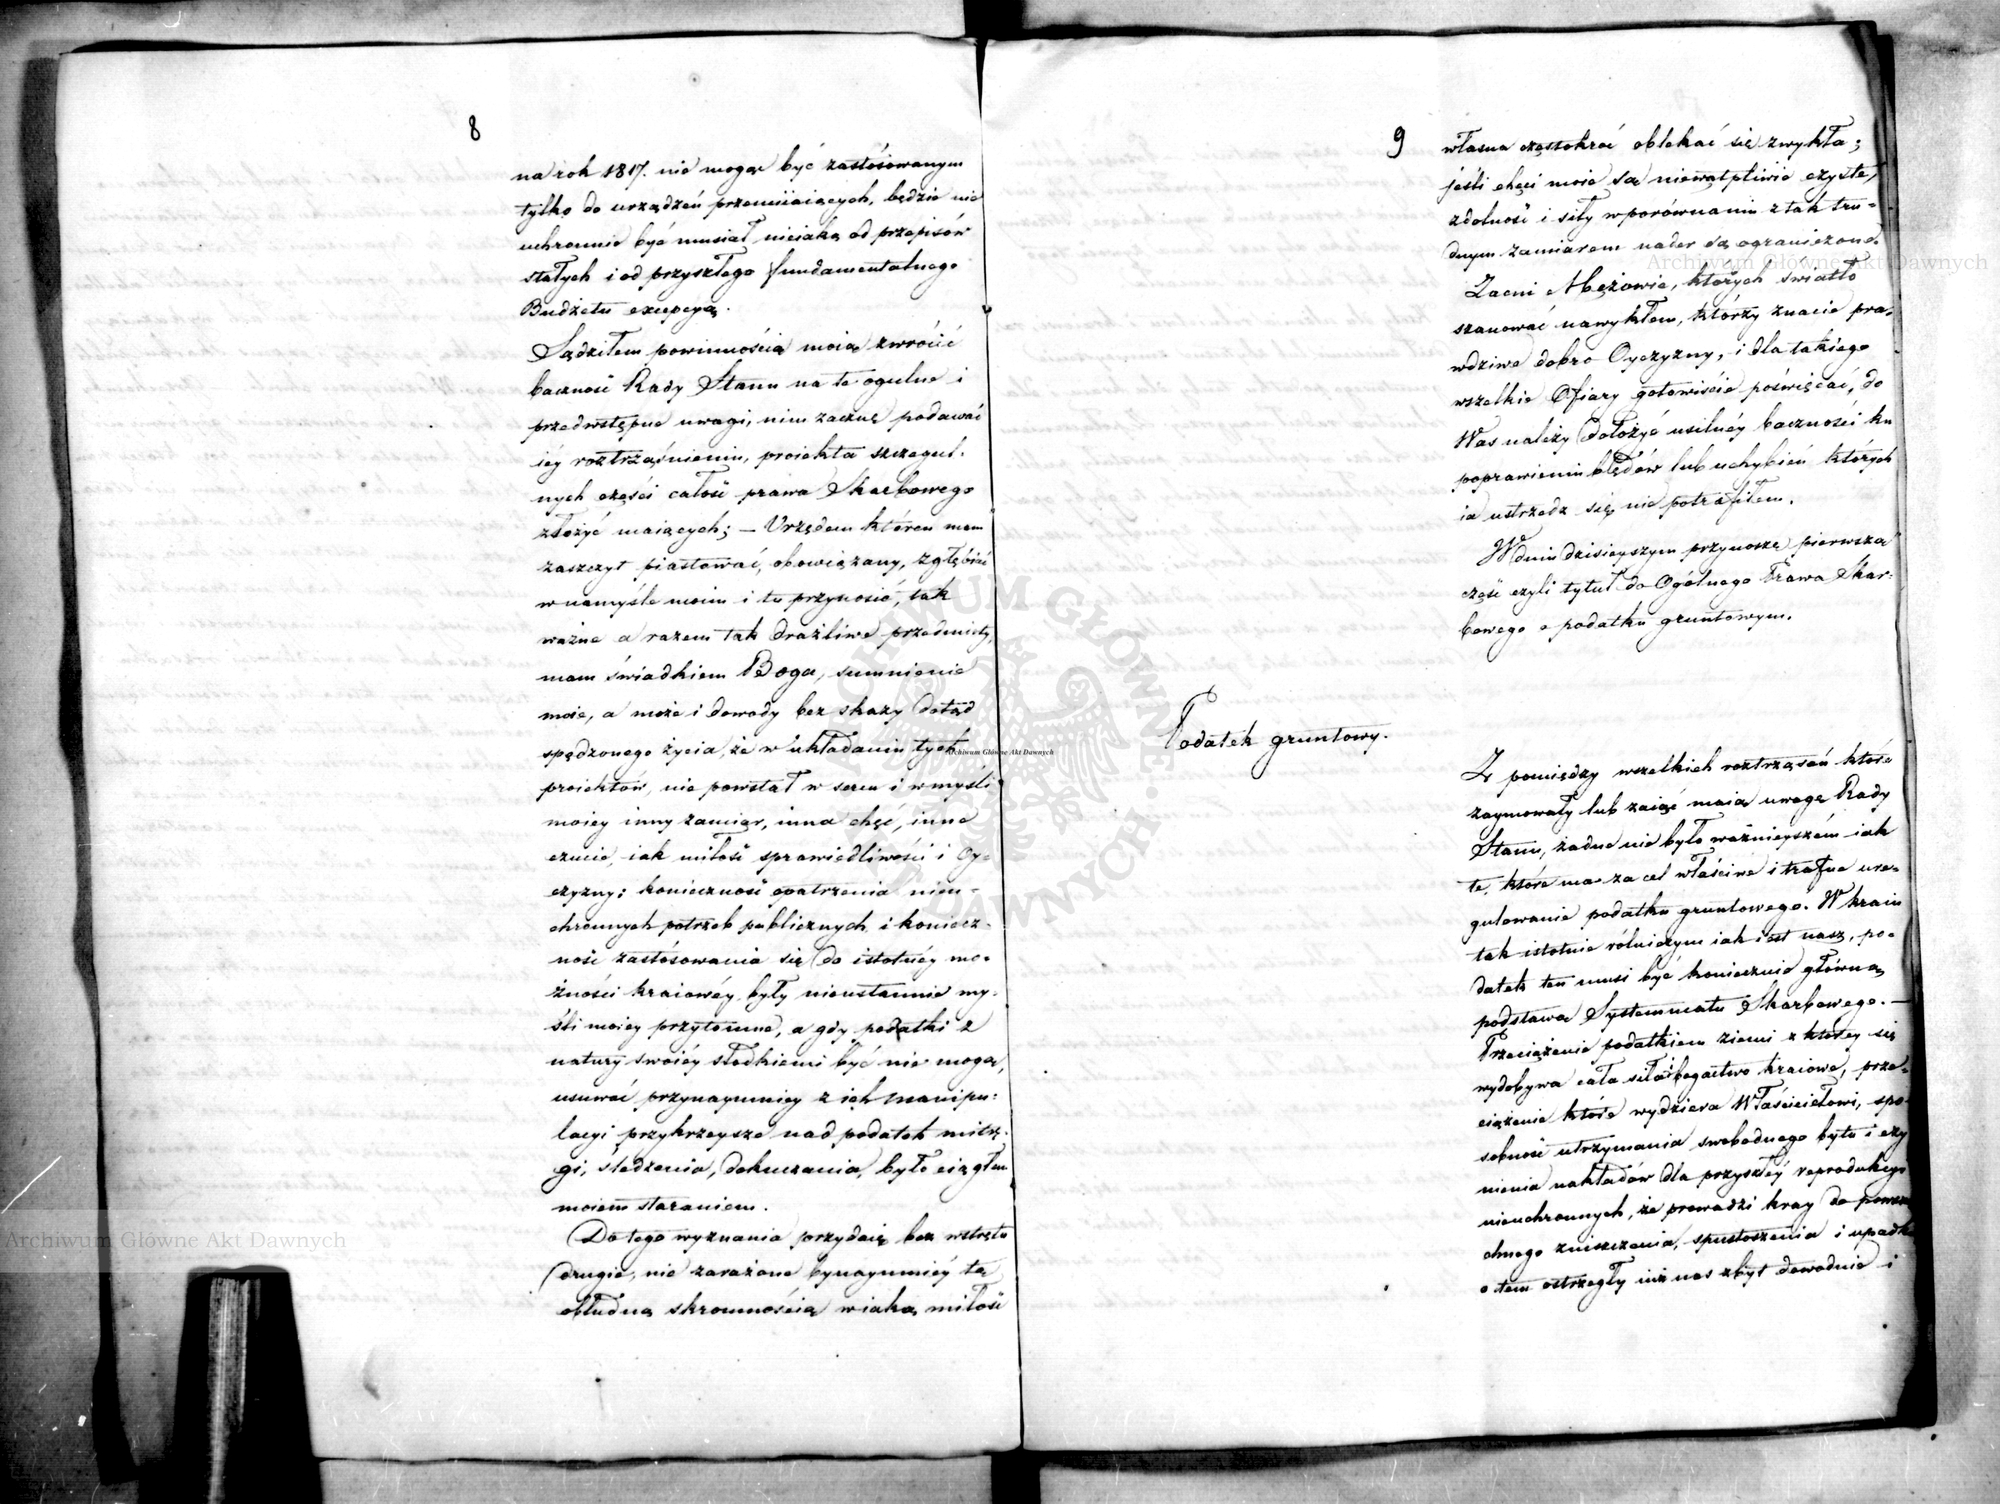 8
na rok 1817. nie mogąc być zastósowanym
tylko do urządzeń przemiiaiących, będzie nie
uchronnie być musiał nieiaką od przepisów
stałych i od przyszłego fundamentalnego
Budżetu excepcyą.
Sądziłem powinnością moią zwrócić
baczność Rady Stanu na te ogulne i
przedwstępne uwagi, nim zacznę podawać
iéy roztrząśnieniu, proiekta szczegul-
nych części całość prawa Skarbowego
złożyć maiących; — Urzędem któren mam
zaszczyt piastować, obowiązany, zgłębiać
w namyśle moim i tu przynosić, tak
ważne a razem tak drażliwe przedmioty,
mam świadkiem Boga, sumnienie
moie, a może i dowody bez skazy dotąd
spędzonego życia, że w układaniu tych
proiektów, nie powstał w sercu i w myśli
moiey inny zamiar, inna chęć, inne
czucie, iak miłość sprawiedliwości i Oy-
czyzny; konieczność opatrzenia nieu-
chronnych potrzeb publicznych i koniecz-
ność zastósowania się do istotnéy mo-
żności kraiowéy były nieustannie my-
śli moiey przytomne, a gdy podatki z
natury swoiéy słodkiemi być nie mogą,
usuwać przynaymniey z ich manipu-
lacyi przykrzeysze nad podatek mitrę-
gi, śledzenia, dokuczania, było ciągłem
moiem staraniem.
Do tego wyznania przydaię bez wstrętu
drugie, nie zarażone bynaymniéy tą
obłudną skromnością w iaką miłość
9
własna częstokroć oblekać się zwykła;
jeśli chęci moie są niewątpliwie czyste,
zdolność i siły w porównaniu z tak tru-
dnym zamiarem nader są ograniczone.
Zacni Mężowie, których światło
szanować nawykłem, którzy znacie pra-
wdziwe dobro Oyczyzny, i dla takiego
wszelkie Ofiary gotowiście poświęcać, do
Was należy dołożyć usilnéy baczności ku
poprawieniu błędów lub uchybień których
ia ustrzedz się nie potrafiłem.
W dniu dzisieyszym przynoszę pierwszą
część czyli tytuł do Ogólnego Prawa Skar-
bowego o podatku gruntowym.
Podatek gruntowy.
Z pomiędzy wszelkich roztrząsań które
zaymowały lub zaiąć maią uwagę Rady
Stanu, żadne nie było ważnieyszém iak
te, które ma za cel właściwe i trafne ure-
gulowanie podatku gruntowego. W kraiu
tak istotnie rólniczym iak iest nasz, po-
datek ten musi być koniecznie główną
podstawą Systemmatu Skarbowego. —
Przeciążenie podatkiem ziemi z którey się
wydobywa cała siła i bogactwo kraiowe, prze-
ciążenie które wydziera Właścicielowi, spo-
sobność utrzymania swobodnego bytu i czy
nienia nakładów dla przyszłéy reprodukcyi
nieuchronnych, że prowadzi kray do powsze
chnego zniszczenia, spustoszenia i upadku
o tem ostrzegły iuż nas zbyt dowodnie i
Archiwum Główne Akt Dawnych
Archiwum Główne Akt Dawnych
Archiwum Główne Akt Dawnych
ARCHIWUM GŁÓWNE AKT DAWNYCH